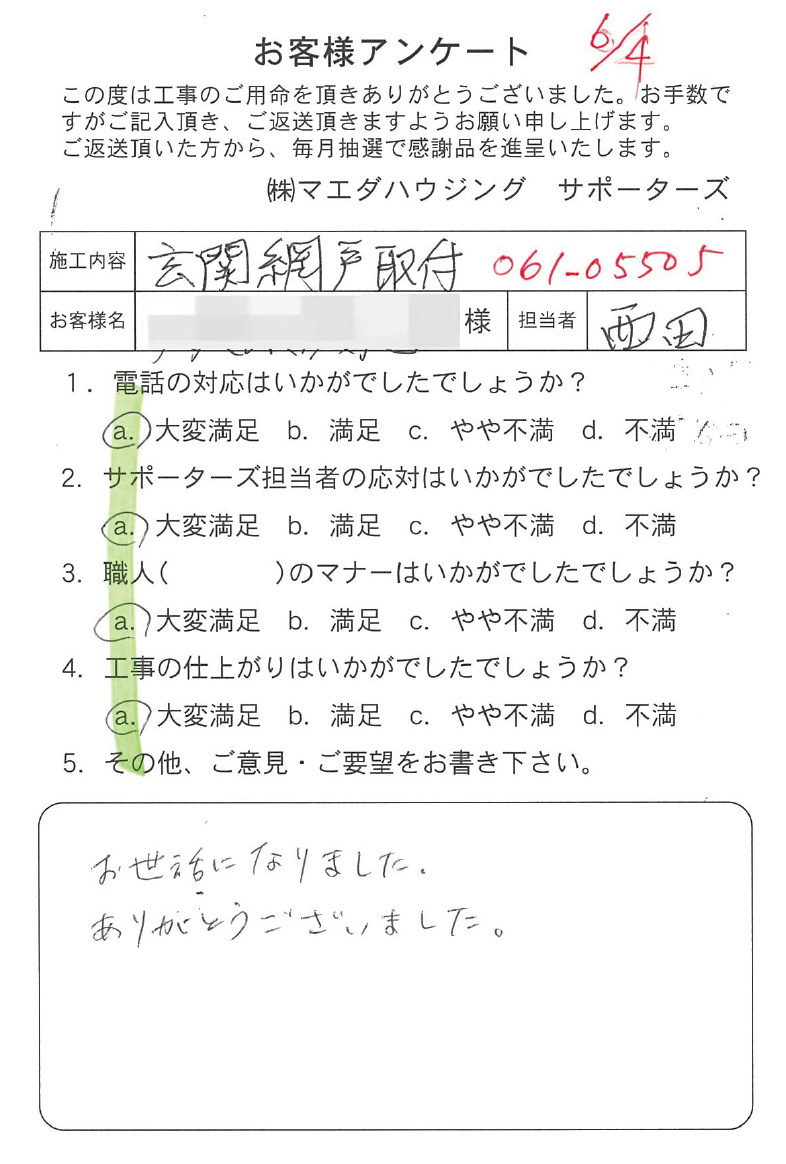 お客様アンケート 6/4
この度は工事のご用命を頂きありがとうございました。お手数で
すがご記入頂き、ご返送頂きますようお願い申し上げます。
ご返送頂いた方から、毎月抽選で感謝品を進呈いたします。
㈱マエダハウジング サポーターズ
施工内容 玄関網戸取付 061-05505
お客様名 様 担当者 西田
1. 電話の対応はいかがでしたでしょうか?
a. 大変満足 b. 満足 c. やや不満 d. 不満
2. サポーターズ担当者の応対はいかがでしたでしょうか?
a. 大変満足 b. 満足 c. やや不満 d. 不満
3. 職人( )のマナーはいかがでしたでしょうか?
a. 大変満足 b. 満足 c. やや不満 d. 不満
4. 工事の仕上がりはいかがでしたでしょうか?
a. 大変満足 b. 満足 c. やや不満 d. 不満
5. その他、ご意見・ご要望をお書き下さい。
お世話になりました。
ありがとうございました。